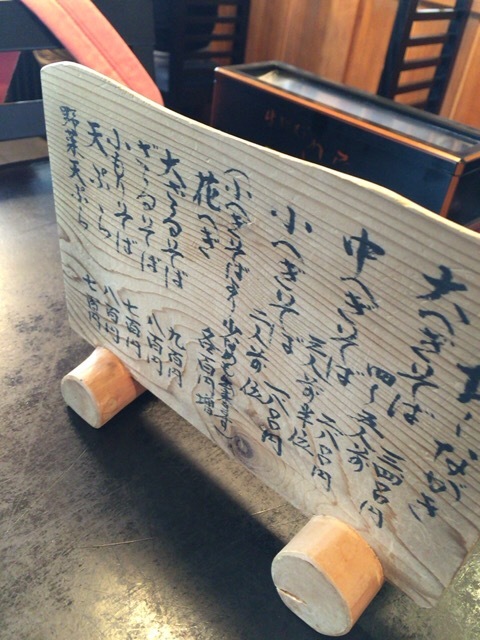 おしながき
大へぎそば 四〜五人前 三四〇〇円
中へぎそば 三人前半位 二八〇〇円
小へぎそば 二人前位 一八〇〇円
(小へぎそばが
花へぎ 各百円増
大ざるそば 九百円
ざるそば 八百円
小もりそば 七百円
天ぷら 八百円
野菜天ぷら 七百円